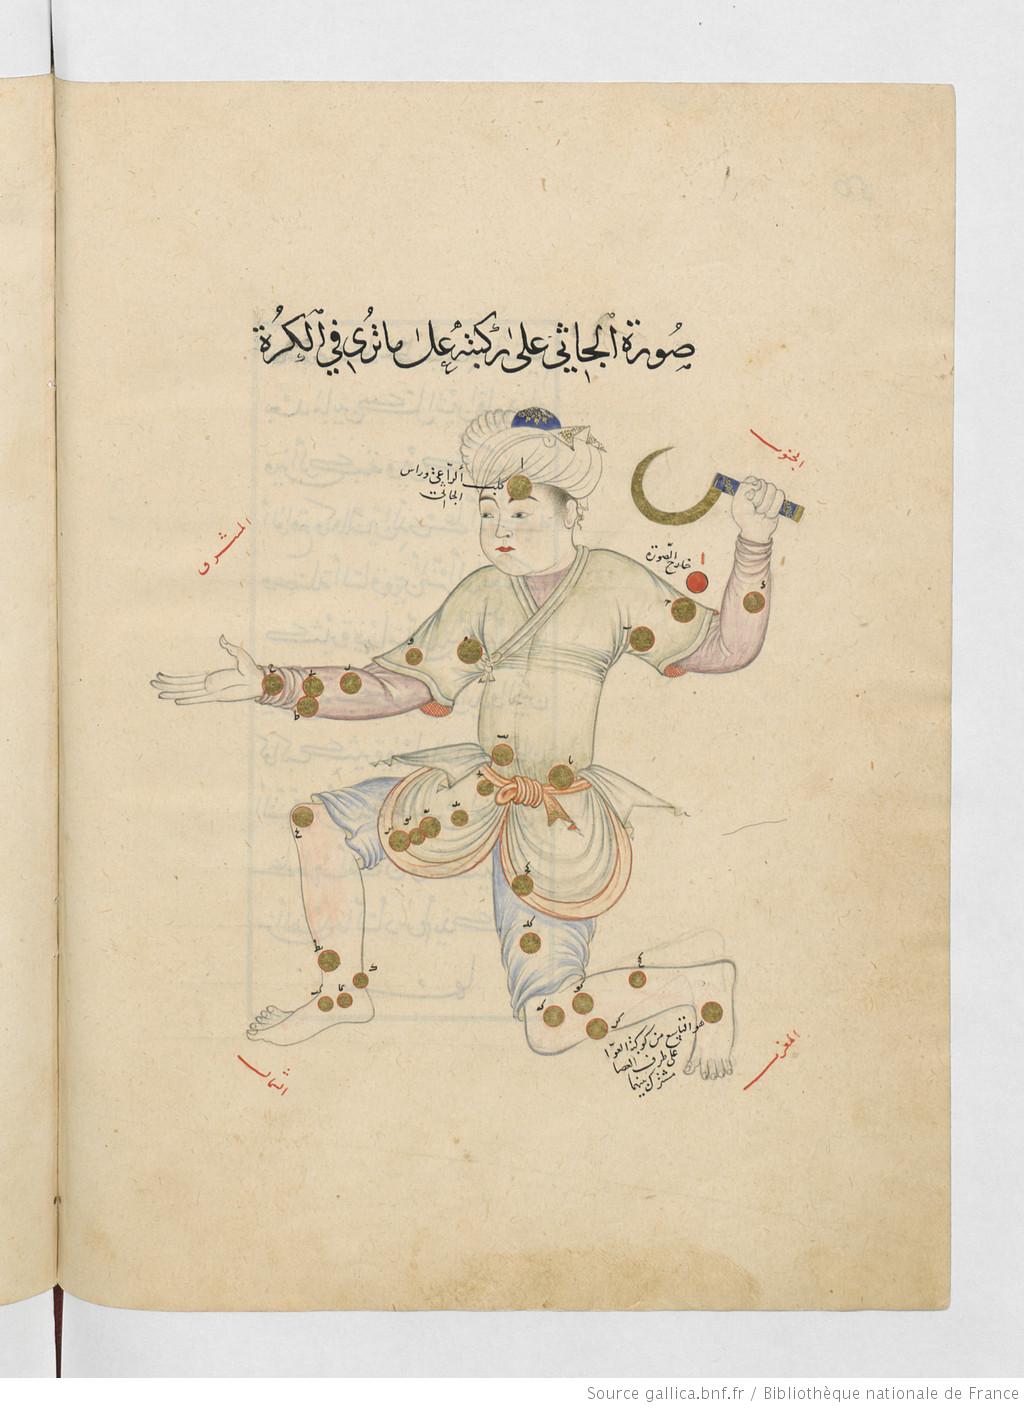 صُورة الجاثي على ركبته على ما تُرى في الكرة
الجنوب
كلب الراعي وراس
الجاثي
المشرق
خارج الصورة
هو التاسع من كوكبة العوا
على طرف العصا
مشترك بينهما
المغرب
الشمال
Source gallica.bnf.fr / Bibliothèque nationale de France